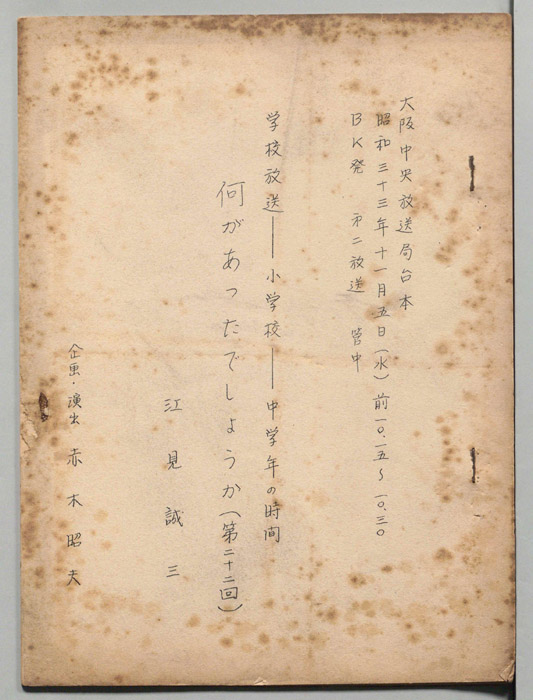 大阪中央放送局台本
昭和三十三年十一月五日(水)前一〇.一五〜一〇.三〇
BK発 第二放送 管中
学校放送――小学校――中学年の時間
何があったでしょうか(第二十二回)
江見誠三
企画・演出 赤木昭夫